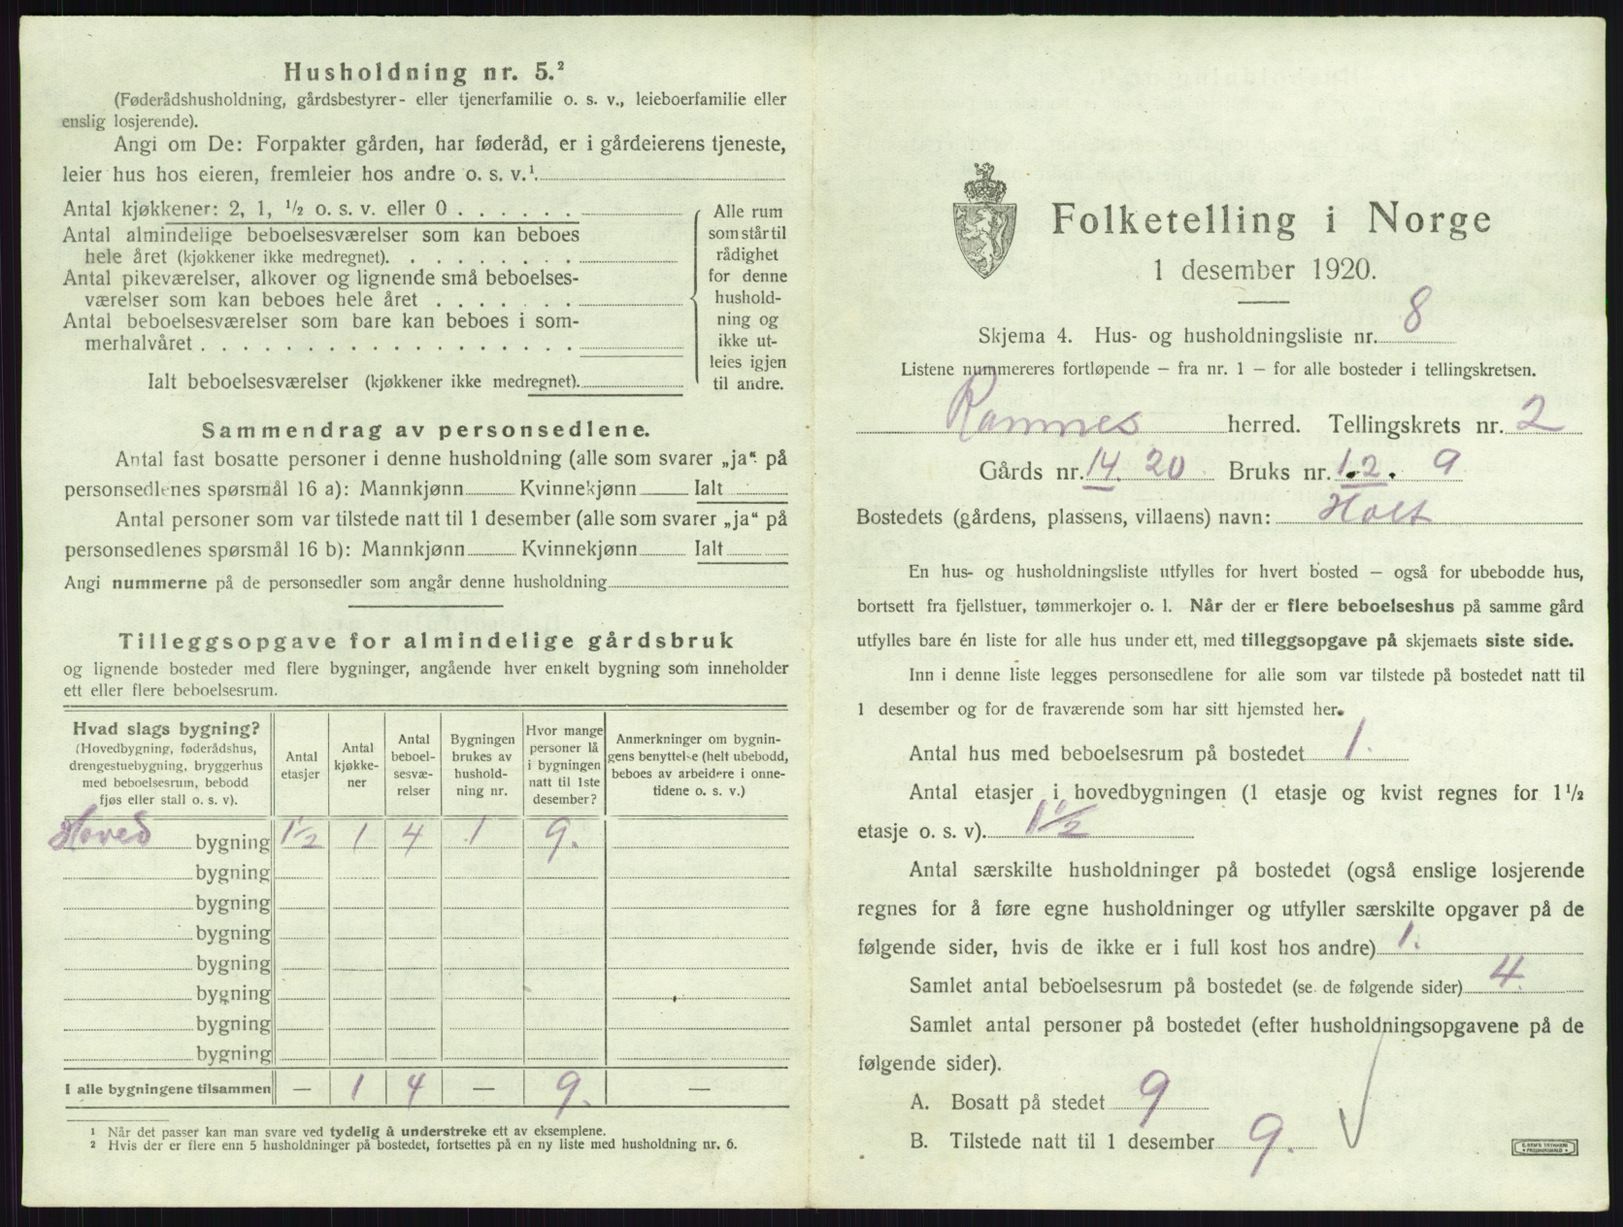 Husholdning nr. 5.²
(Føderådshusholdning, gårdsbestyrer- eller tjenerfamilie o. s. v., leieboerfamilie eller
enslig losjerende).
Angi om De: Forpakter gården, har føderåd, er i gårdeierens tjeneste,
leier hus hos eieren, fremleier hos andre o. s. v.¹.
Antal kjøkkener: 2, 1, ½ o. s. v. eller 0
Antal almindelige beboelsesværelser som kan beboes
hele året (kjøkkener ikke medregnet).
Antal pikeværelser, alkover og lignende små beboelses-
værelser som kan beboes hele året
Antal beboelsesværelser som bare kan beboes i som-
merhalvåret
Ialt beboelsesværelser (kjøkkener ikke medregnet).
Alle rum
som står til
rådighet
for denne
hushold-
ning og
ikke ut-
leies igjen
til andre.
Sammendrag av personsedlene.
Antal fast bosatte personer i denne husholdning (alle som svarer „ja“ på
personsedlenes spørsmål 16 a): Mannkjønn Kvinnekjønn Ialt
Antal personer som var tilstede natt til 1 desember (alle som svarer „ja“ på
personsedlenes spørsmål 16 b): Mannkjønn Kvinnekjønn Ialt
Angi nummerne på de personsedler som angår denne husholdning
Tilleggsopgave for almindelige gårdsbruk
og lignende bosteder med flere bygninger, angående hver enkelt bygning som inneholder
ett eller flere beboelsesrum.
Hvad slags bygning?
(Hovedbygning, føderådshus,
drengestuebygning, bryggerhus
med beboelsesrum, bebodd
fjøs eller stall o. s. v).
Antal
etasjer
Antal
kjøkke-
ner
Antal
beboel-
sesvæ-
relser
Bygningen
brukes av
hushold-
ning nr.
Hvor mange
personer lå
i bygningen
natt til 1ste
desember?
Anmerkninger om bygnin-
gens benyttelse (helt ubebodd,
beboes av arbeidere i onne-
tidene o. s. v.)
Hoved bygning 1½ 1 4 1 9.
bygning
bygning
bygning
bygning
bygning
bygning
bygning
I alle bygningene tilsammen — 1 4 — 9. —
¹ Når det passer kan man svare ved tydelig å understreke ett av eksemplene.
² Hvis der er flere enn 5 husholdninger på bostedet, fortsettes på en ny liste med husholdning nr. 6.
Folketelling i Norge
1 desember 1920.
Skjema 4. Hus- og husholdningsliste nr. 8
Listene nummereres fortløpende — fra nr. 1 — for alle bosteder i tellingskretsen.
Ramnes herred. Tellingskrets nr. 2
Gårds nr. 14. 20 Bruks nr. 1.2. 9
Bostedets (gårdens, plassens, villaens) navn: Holt
En hus- og husholdningsliste utfylles for hvert bosted — også for ubebodde hus,
bortsett fra fjellstuer, tømmerkojer o. l. Når der er flere beboelseshus på samme gård
utfylles bare én liste for alle hus under ett, med tilleggsopgave på skjemaets siste side.
Inn i denne liste legges personsedlene for alle som var tilstede på bostedet natt til
1 desember og for de fraværende som har sitt hjemsted her.
Antal hus med beboelsesrum på bostedet 1.
Antal etasjer i hovedbygningen (1 etasje og kvist regnes for 1½
etasje o. s. v). 1½
Antal særskilte husholdninger på bostedet (også enslige losjerende
regnes for å føre egne husholdninger og utfyller særskilte opgaver på de
følgende sider, hvis de ikke er i full kost hos andre) 1.
Samlet antal beboelsesrum på bostedet (se de følgende sider) 4.
Samlet antal personer på bostedet (efter husholdningsopgavene på de
følgende sider).
A. Bosatt på stedet 9
B. Tilstede natt til 1 desember 9.